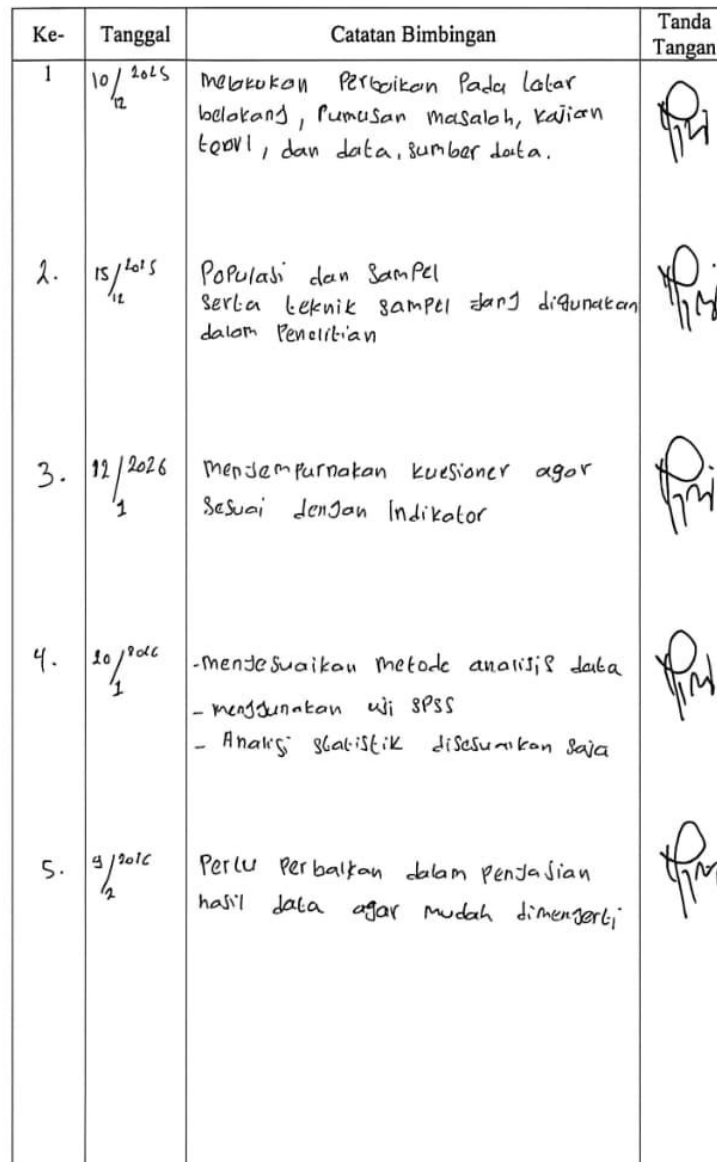 Ke- Tanggal Catatan Bimbingan Tanda Tangan
1 10/12 2025 melakukan Perbaikan Pada latar
belakang, Rumusan masalah, kajian
teori, dan data, sumber data.
2. 15/12 2025 Populasi dan Sampel
Serta teknik sampel yang digunakan
dalam Penelitian
3. 12/1 2026 menyempurnakan kuesioner agar
Sesuai dengan Indikator
4. 20/1 2026 -menyesuaikan metode analisis data
- menggunakan uji SPSS
- Analisi statistik disesuaikan saja
5. 9/2 2026 Perlu Perbaikan dalam penyajian
hasil data agar mudah dimengerti